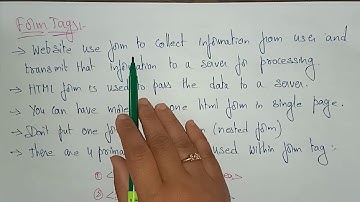 Form Tags:-
→ Website use form to collect information from user and
transmit that information to a server for processing.
→ HTML form is used to pass the data to a server.
→ You can have more one html form in single page.
→ Don't put one form (nested form)
→ There are 4 used within form tag:-
①
②